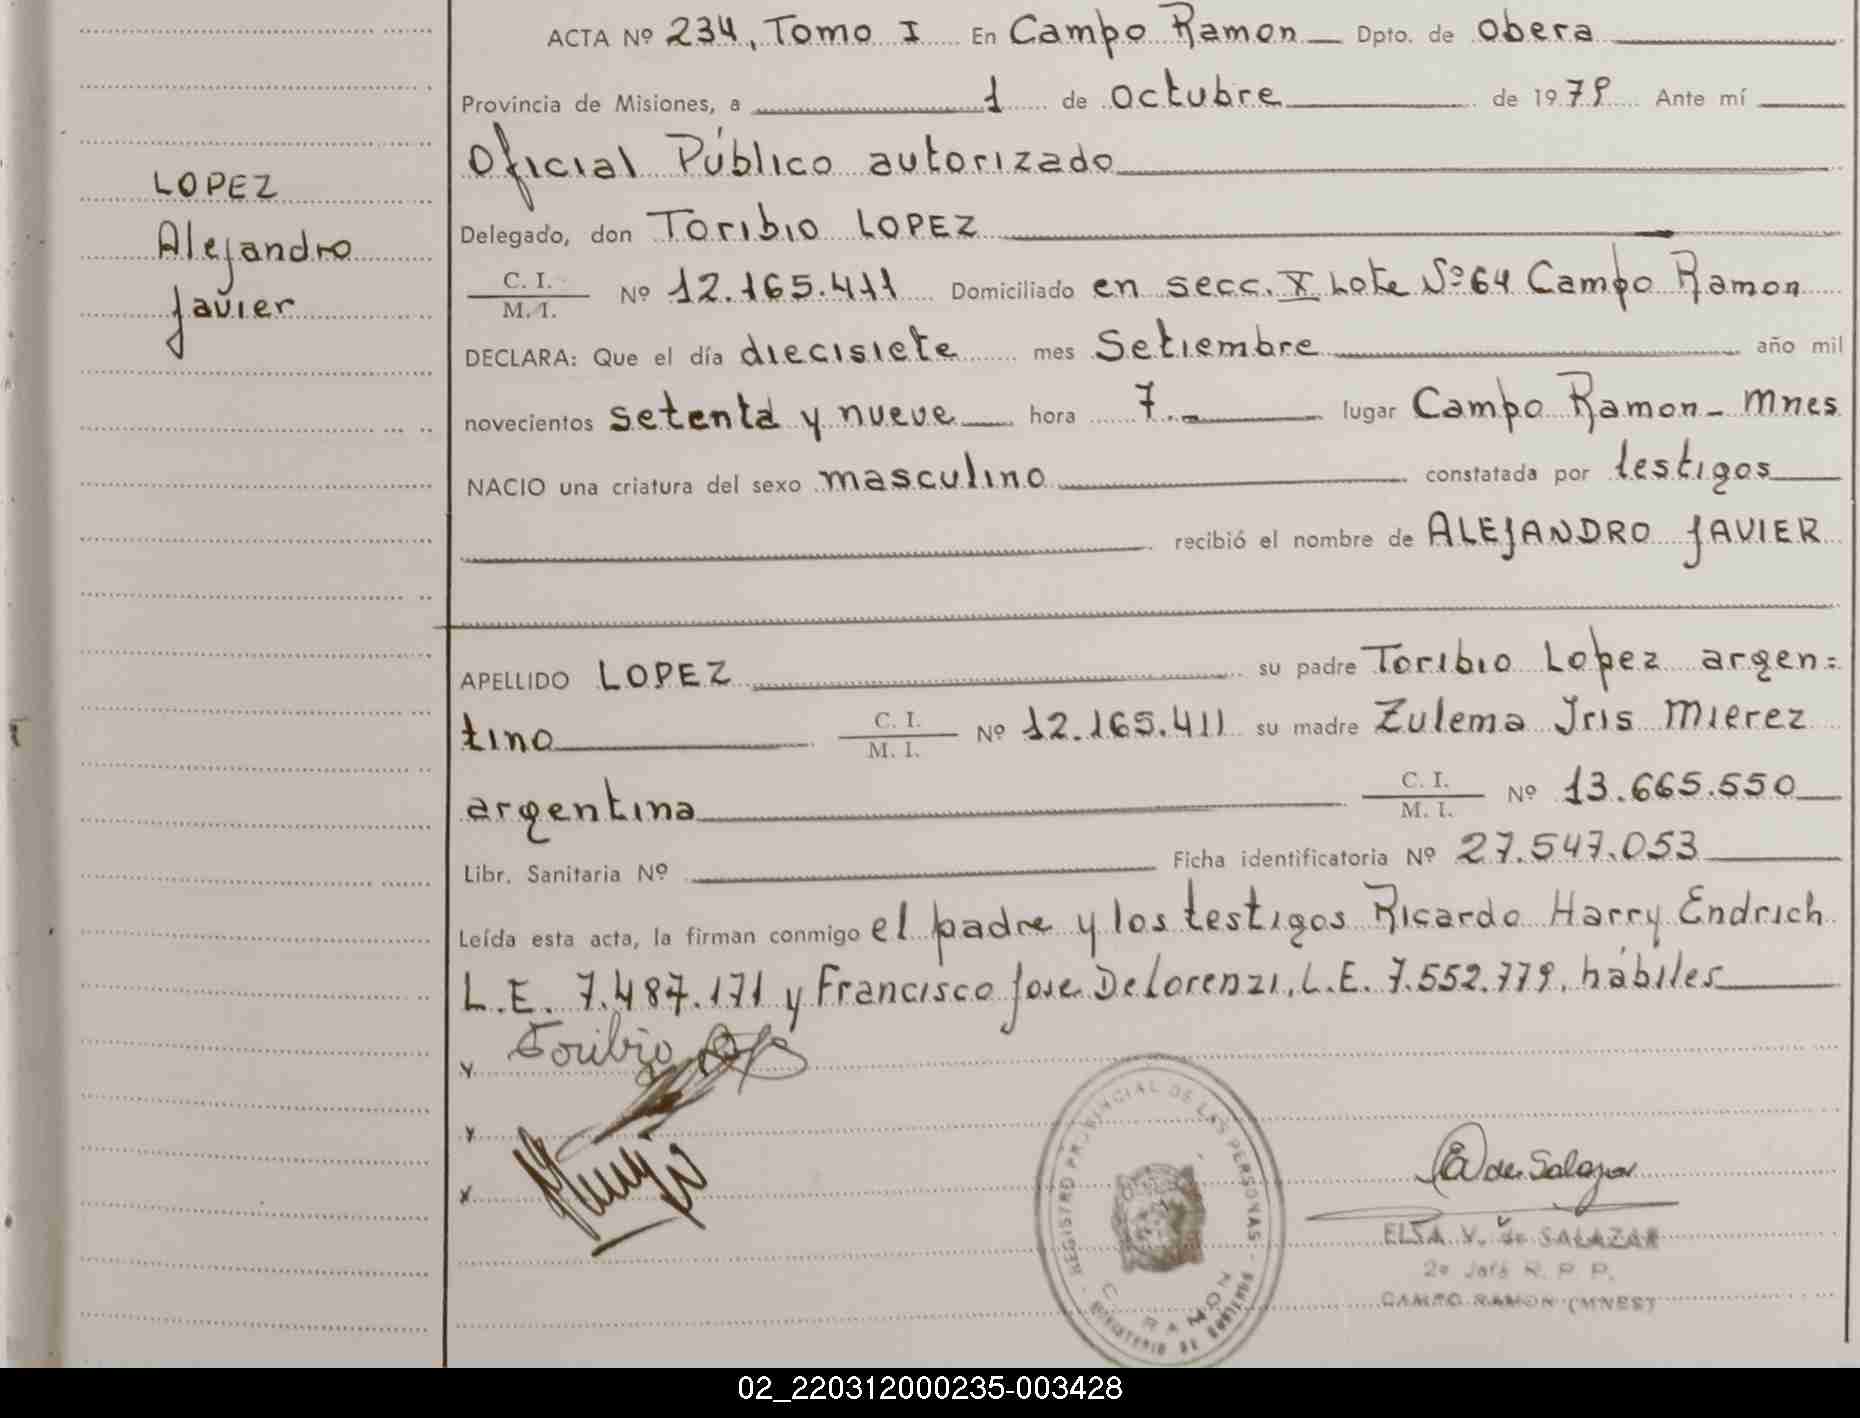 ACTA Nº 234, Tomo I En Campo Ramon Dpto. de Obera
Provincia de Misiones, a 1 de Octubre de 1979 Ante mí
Oficial Público autorizado
Delegado, don Toribio LOPEZ
C. I.
M. I.
Nº 12.165.411 Domiciliado en secc. X Lote Nº 64 Campo Ramon
DECLARA: Que el día diecisiete mes Setiembre año mil
novecientos setenta y nueve hora 7.- lugar Campo Ramon - Mnes
NACIO una criatura del sexo masculino constatada por testigos
recibió el nombre de ALEJANDRO JAVIER
LOPEZ
Alejandro
Javier
APELLIDO LOPEZ su padre Toribio Lopez argen=
tino C. I.
M. I. Nº 12.165.411 su madre Zulema Iris Mierez
argentina C. I.
M. I. Nº 13.665.550
Libr. Sanitaria Nº Ficha identificatoria Nº 27.547.053
Leída esta acta, la firman conmigo el padre y los testigos Ricardo Harry Endrich
L.E. 7.487.171 y Francisco Jose Delorenzi, L.E. 7.552.779, hábiles
Toribio
REGISTRO PROVINCIAL DE LAS PERSONAS
C. RAMON
de Salazar
ELSA V. de SALAZAR
2º Jefe R. P. P.
CAMPO RAMON (MNES)
02_220312000235-003428